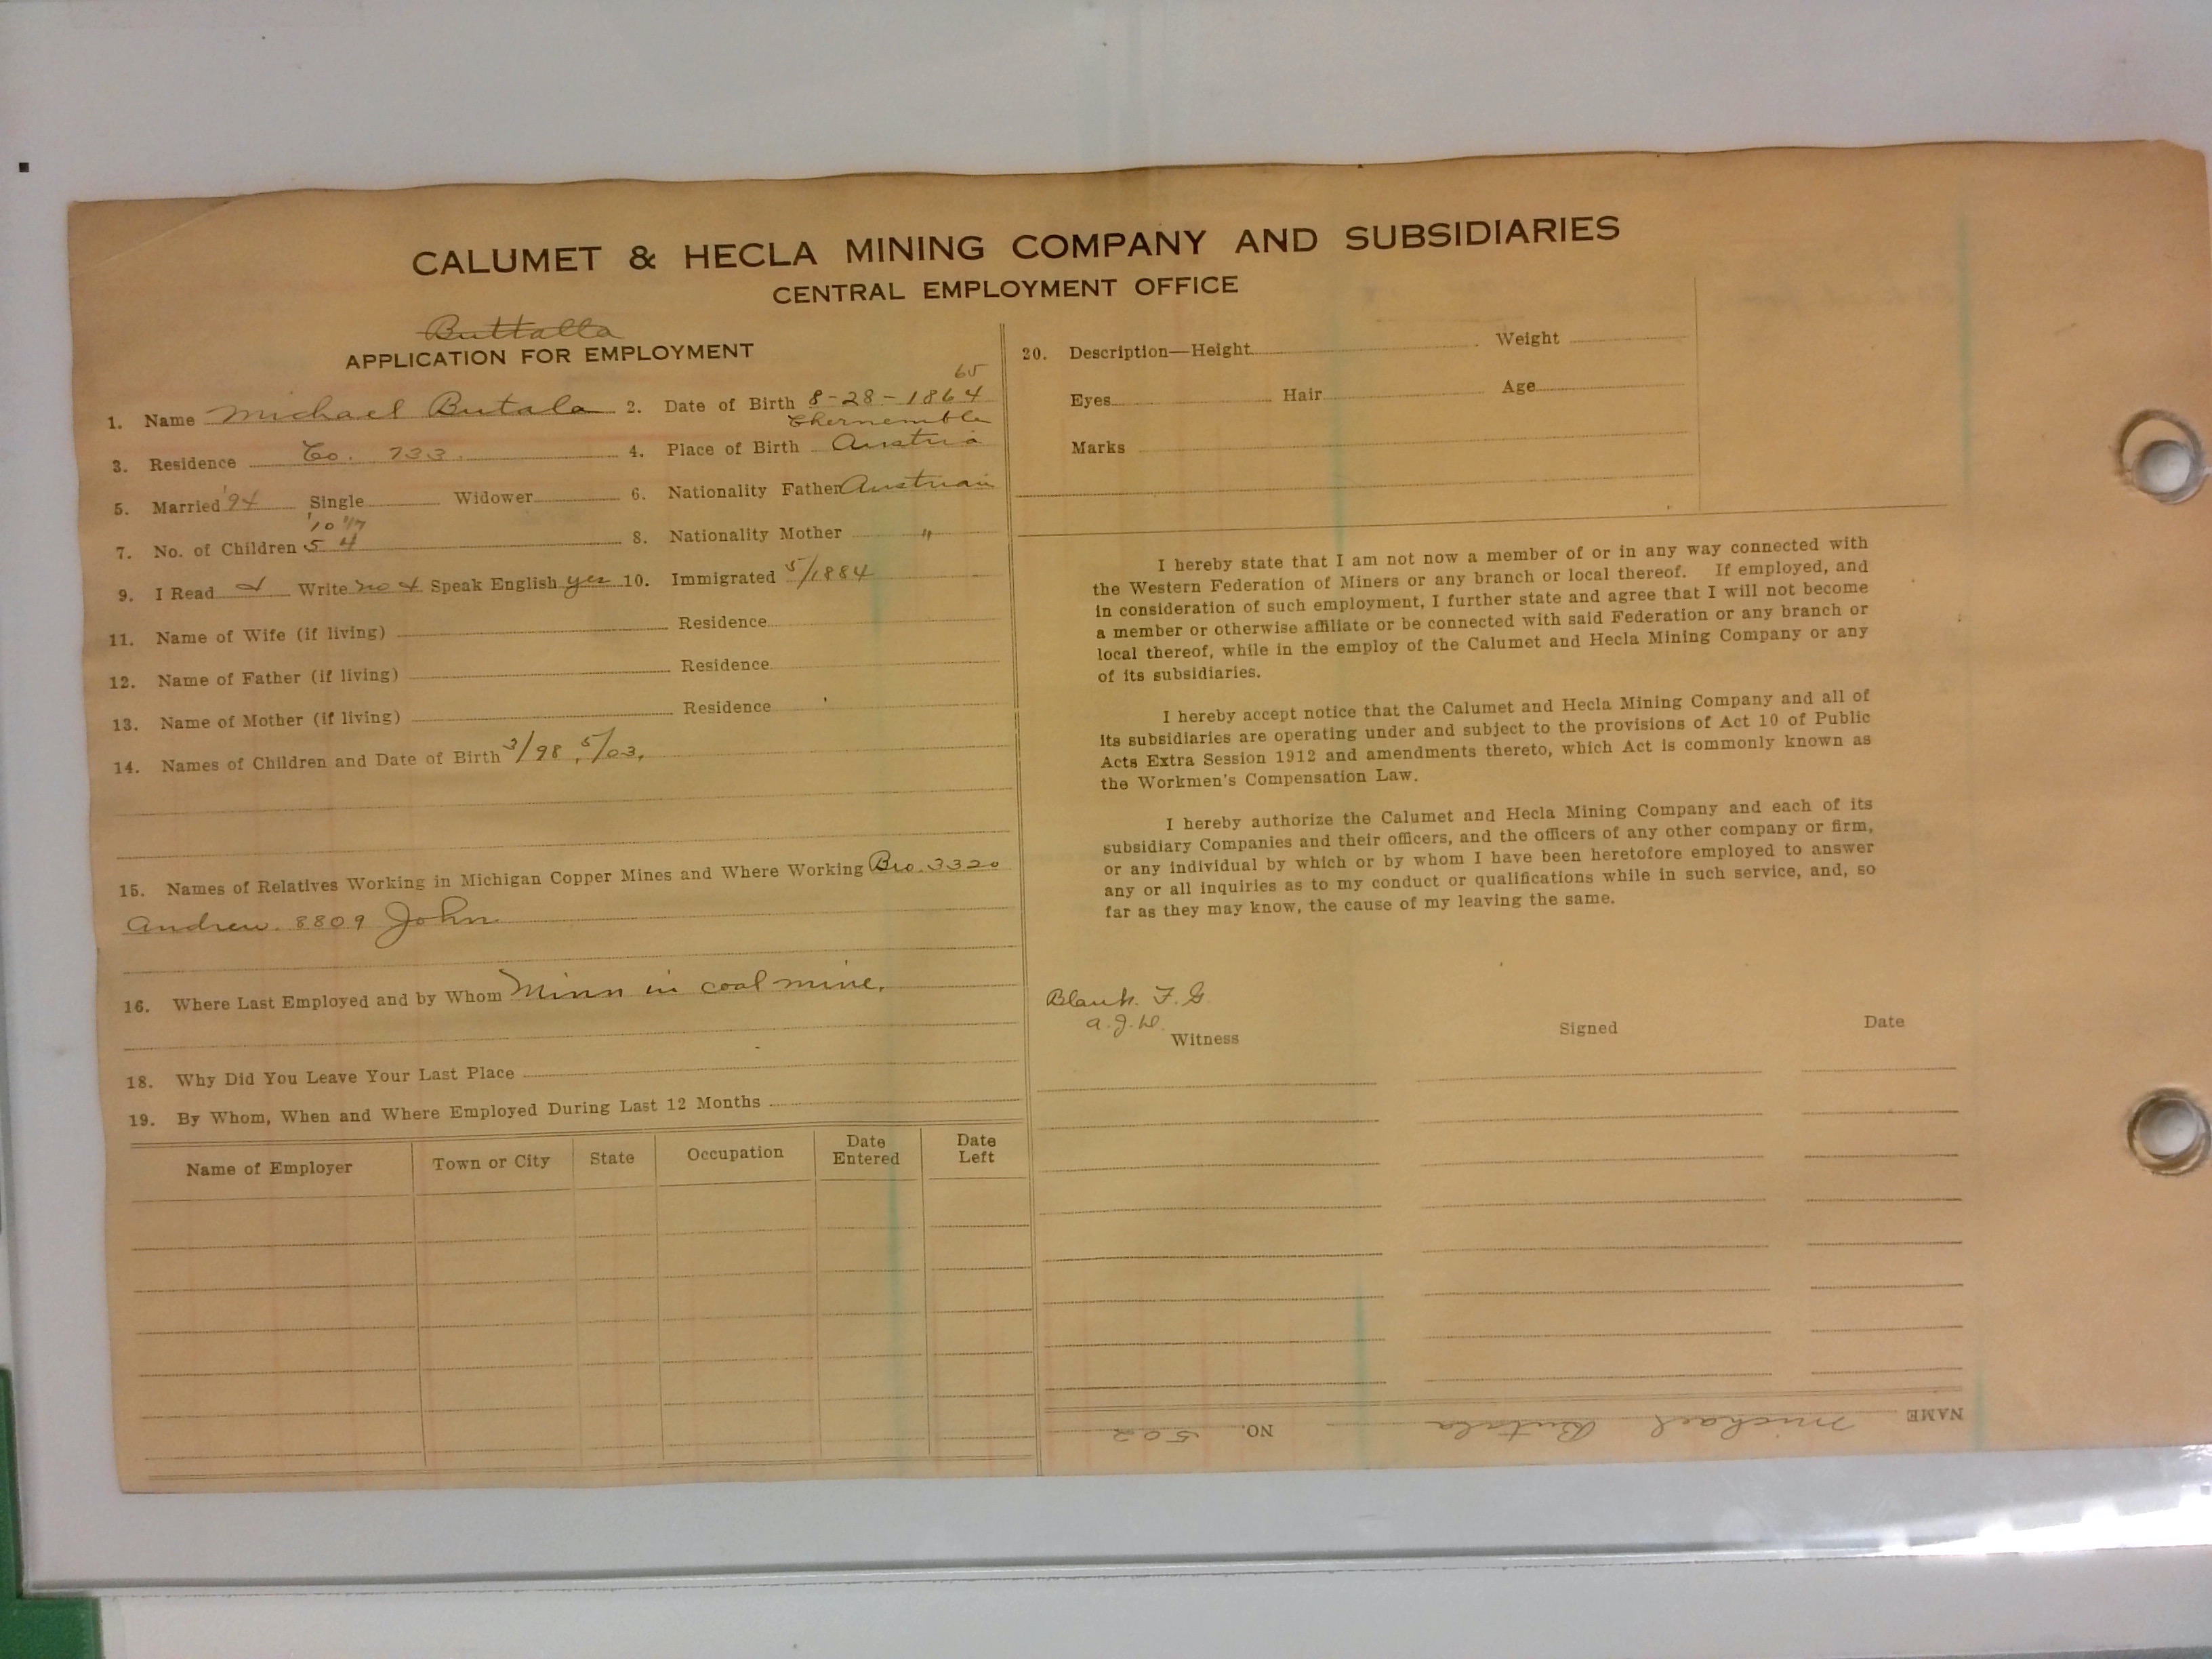 CALUMET & HECLA MINING COMPANY AND SUBSIDIARIES
CENTRAL EMPLOYMENT OFFICE
Buttalla
APPLICATION FOR EMPLOYMENT
65
1. Name Michael Butala 2. Date of Birth 8-28-1864
Chernembla
3. Residence Co. 733. 4. Place of Birth Austria
5. Married '94 Single Widower 6. Nationality Father Austrian
'10 '17
7. No. of Children 5 4 8. Nationality Mother "
9. I Read & Write no & Speak English yes 10. Immigrated 5/1884
11. Name of Wife (if living) Residence
12. Name of Father (if living) Residence
13. Name of Mother (if living) Residence
14. Names of Children and Date of Birth 3/98, 5/03,
15. Names of Relatives Working in Michigan Copper Mines and Where Working Bro. 3320
Andrew. 8809 John
16. Where Last Employed and by Whom Minn in coal mine.
18. Why Did You Leave Your Last Place
19. By Whom, When and Where Employed During Last 12 Months
Name of Employer Town or City State Occupation Date Entered Date Left
20. Description—Height Weight
Eyes Hair Age
Marks
I hereby state that I am not now a member of or in any way connected with
the Western Federation of Miners or any branch or local thereof. If employed, and
in consideration of such employment, I further state and agree that I will not become
a member or otherwise affiliate or be connected with said Federation or any branch or
local thereof, while in the employ of the Calumet and Hecla Mining Company or any
of its subsidiaries.
I hereby accept notice that the Calumet and Hecla Mining Company and all of
its subsidiaries are operating under and subject to the provisions of Act 10 of Public
Acts Extra Session 1912 and amendments thereto, which Act is commonly known as
the Workmen's Compensation Law.
I hereby authorize the Calumet and Hecla Mining Company and each of its
subsidiary Companies and their officers, and the officers of any other company or firm,
or any individual by which or by whom I have been heretofore employed to answer
any or all inquiries as to my conduct or qualifications while in such service, and, so
far as they may know, the cause of my leaving the same.
Blank. F. G.
a. J. W.
Witness Signed Date
NAME Michael Butala NO. 502